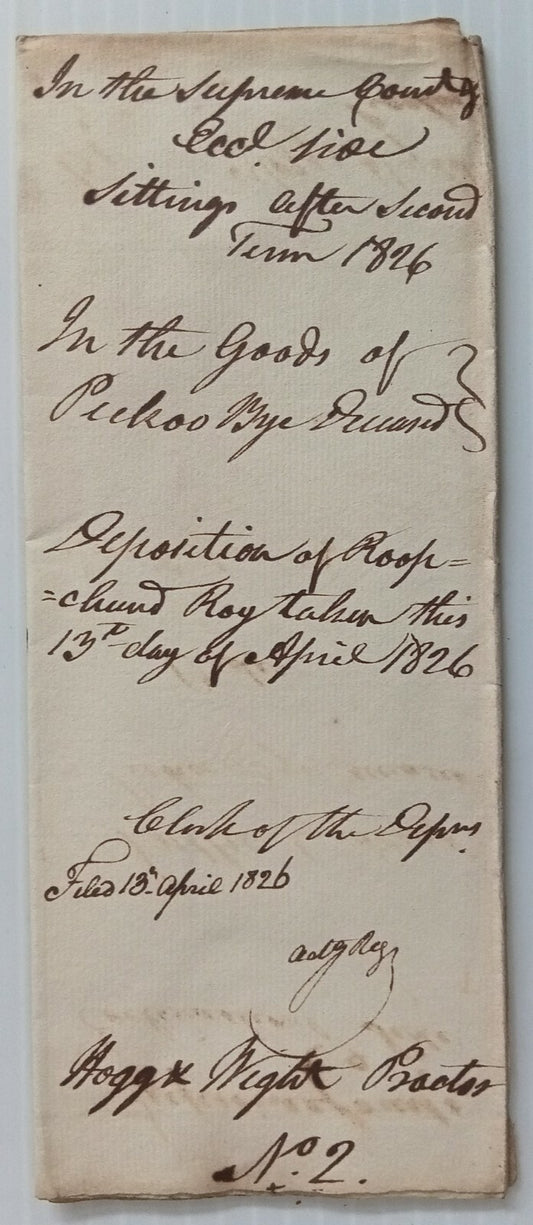 In the Supreme Court
Eccl. side
Sittings after Second
Term 1826
In the Goods of
Peekoo Bye Deceased
Deposition of Roop=
=chund Roy taken this
13th day of April 1826
Clerk of the Depns.
Filed 13th April 1826
actg Reg
Hogg & Wight Proctor
No. 2.